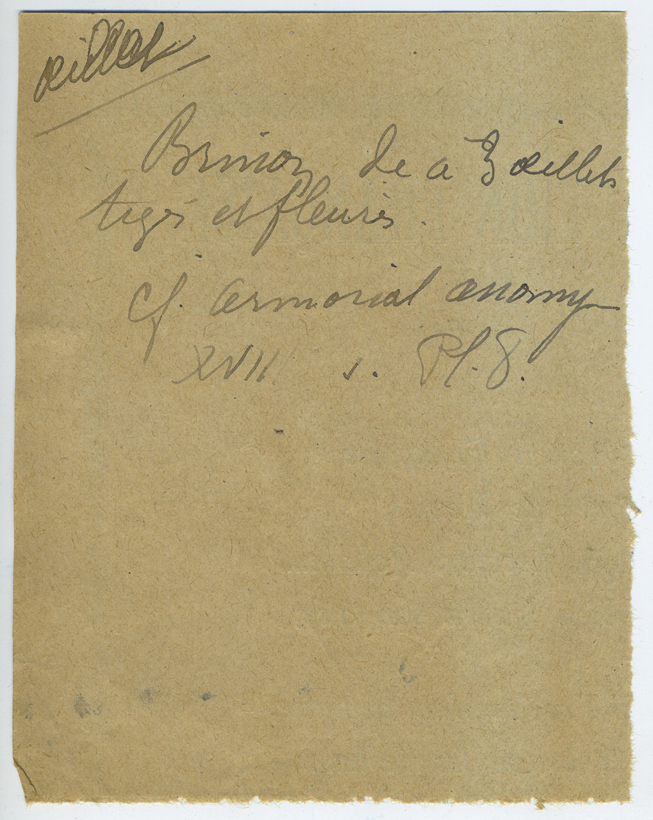 œillet
Brinon de à 3 œillets
tigés et fleuris.
cf. armorial anonyme
XVII s. Pl. 8.